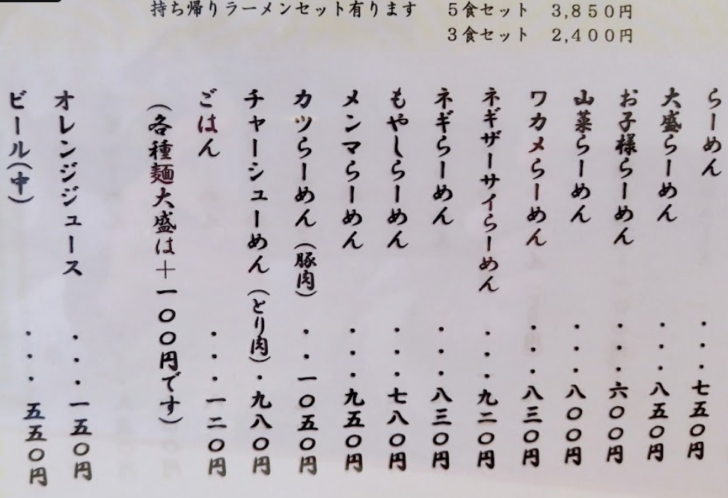 持ち帰りラーメンセット有ります　５食セット　３,８５０円
３食セット　２,４００円
らーめん・・・七五〇円
大盛らーめん・・・八五〇円
お子様らーめん・・・六〇〇円
山菜らーめん・・・八〇〇円
ワカメらーめん・・・八三〇円
ネギザーサイらーめん・・九二〇円
ネギらーめん・・・八三〇円
もやしらーめん・・・七八〇円
メンマらーめん・・・九五〇円
カツらーめん（豚肉）・・一〇五〇円
チャーシューめん（とり肉）・九八〇円
ごはん・・・一二〇円
（各種麺大盛は＋一〇〇円です）
オレンジジュース・・・一五〇円
ビール（中）・・・五五〇円